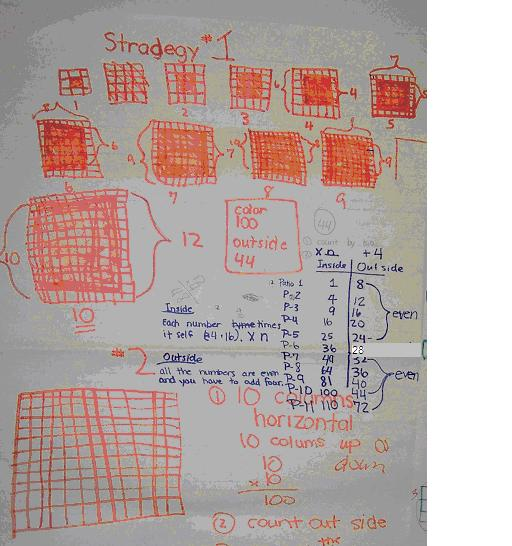 Stradegy #1
7
6 4
1 2 3 4 5
6
9 7
9
6 7 8 9
10 12
10
color
100
outside
44
44
① count by two
x n +4
Inside Outside
Patio 1 1 8
P-2 4 12
P-3 9 16
P-4 16 20
P-5 25 24
P-6 36 28
P-7 49 32
P-8 64 36
P-9 81 40
P-10 100 44
P-11 110 72
even
even
Inside
Each number times
it self (4, 16), x n
Outside
all the numbers are even
and you have to add four.
#2
① 10 columns
horizontal
10 colums up a
down
10
x 10
100
② count out side
the